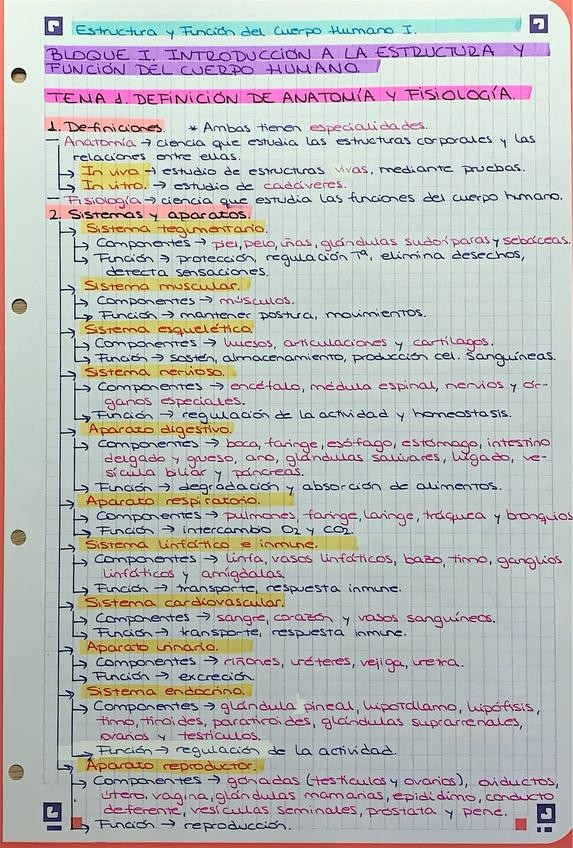 Estructura y Función del Cuerpo Humano I.
BLOQUE I. INTRODUCCIÓN A LA ESTRUCTURA Y
FUNCIÓN DEL CUERPO HUMANO.
TEMA 1. DEFINICIÓN DE ANATOMÍA Y FISIOLOGÍA.
1. Definiciones. * Ambas tienen especialidades.
— Anatomía → ciencia que estudia las estructuras corporales y las
relaciones entre ellas.
↳ In vivo → estudio de estructuras vivas, mediante pruebas.
↳ In vitro. → estudio de cadáveres.
— Fisiología → ciencia que estudia las funciones del cuerpo humano.
2. Sistemas y aparatos.
→ Sistema tegumentario.
↳ Componentes → piel, pelo, uñas, glándulas sudoríparas y sebáceas.
↳ Función → protección, regulación Tª, elimina desechos,
detecta sensaciones.
→ Sistema muscular.
↳ Componentes → músculos.
↳ Función → mantener postura, movimientos.
→ Sistema esquelético
↳ Componentes → huesos, articulaciones y cartílagos.
↳ Función → sostén, almacenamiento, producción cel. sanguíneas.
→ Sistema nervioso.
↳ Componentes → encéfalo, médula espinal, nervios y ór-
ganos especiales.
↳ Función → regulación de la actividad y homeostasis.
→ Aparato digestivo.
↳ Componentes → boca, faringe, esófago, estómago, intestino
delgado y grueso, ano, glándulas salivares, hígado, ve-
sícula biliar y páncreas.
↳ Función → degradación y absorción de alimentos.
→ Aparato respiratorio.
↳ Componentes → pulmones, faringe, laringe, tráquea y bronquios
↳ Función → intercambio O2 y CO2.
→ Sistema linfático e inmune.
↳ Componentes → linfa, vasos linfáticos, bazo, timo, ganglios
linfáticos y amígdalas.
↳ Función → transporte, respuesta inmune.
→ Sistema cardiovascular.
↳ Componentes → sangre, corazón y vasos sanguíneos.
↳ Función → transporte, respuesta inmune.
→ Aparato urinario.
↳ Componentes → riñones, uréteres, vejiga, uretra.
↳ Función → excreción.
→ Sistema endocrino.
↳ Componentes → glándula pineal, hipotálamo, hipófisis,
timo, tiroides, paratiroides, glándulas suprarrenales,
ovarios y testículos.
↳ Función → regulación de la actividad.
→ Aparato reproductor.
↳ Componentes → gónadas (testículos y ovarios), oviductos,
útero, vagina, glándulas mamarias, epidídimo, conducto
deferente, vesículas seminales, próstata y pene.
↳ Función → reproducción.